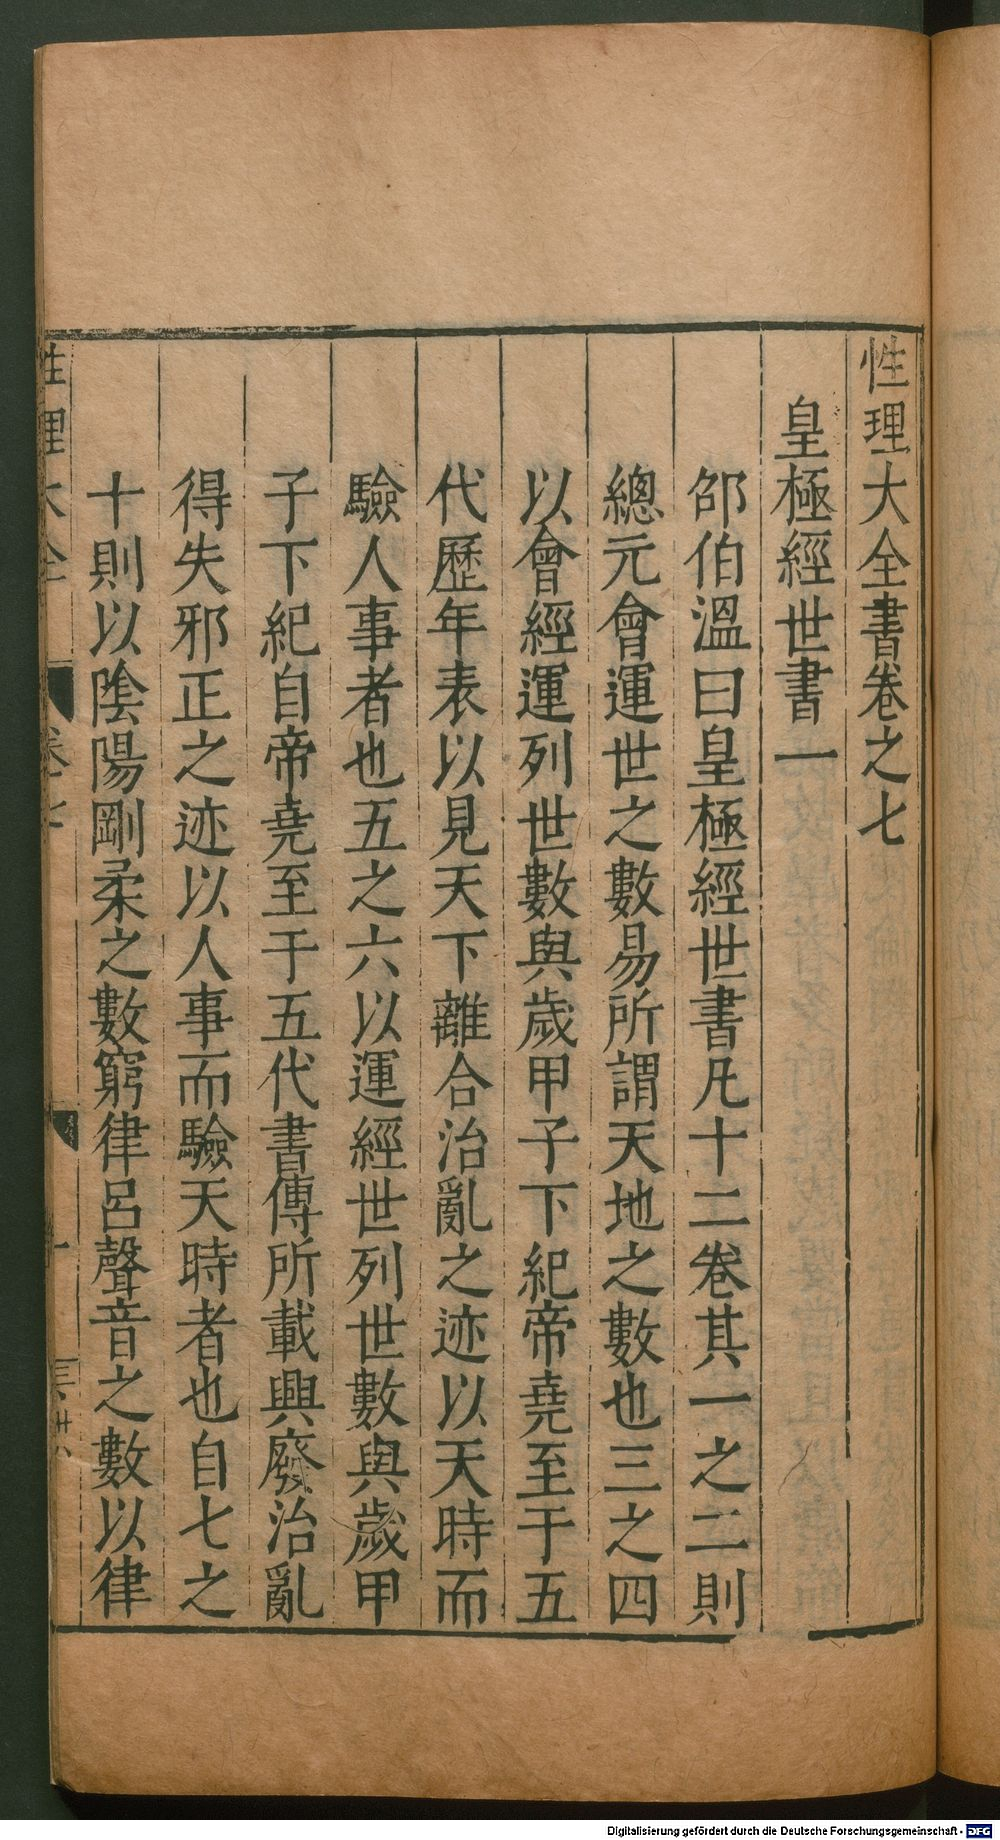 性理大全書卷之七
皇極經世書一
邵伯溫曰皇極經世書凡十二卷其一之二則
總元會運世之數易所謂天地之數也三之四
以會經運列世數與歲甲子下紀帝堯至于五
代歷年表以見天下離合治亂之迹以天時而
驗人事者也五之六以運經世列世數與歲甲
子下紀自帝堯至于五代書傳所載興廢治亂
得失邪正之迹以人事而驗天時者也自七之
十則以陰陽剛柔之數窮律呂聲音之數以律
性理大全
卷七
一
Digitalisierung gefördert durch die Deutsche Forschungsgemeinschaft - DFG